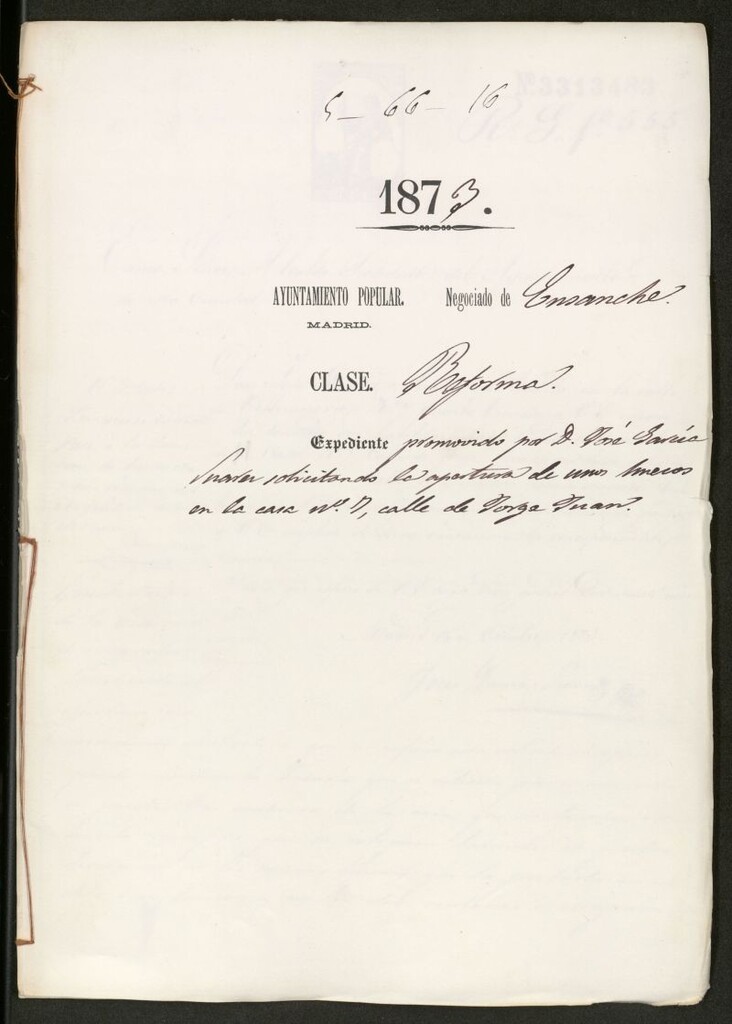 5 - 66 - 16
1873.
AYUNTAMIENTO POPULAR. Negociado de Ensanche.
MADRID.
CLASE. Reforma.
Expediente promovido por D. José García
Suarez solicitando la apertura de unos huecos
en la casa nº. 7, calle de Jorge Juan.